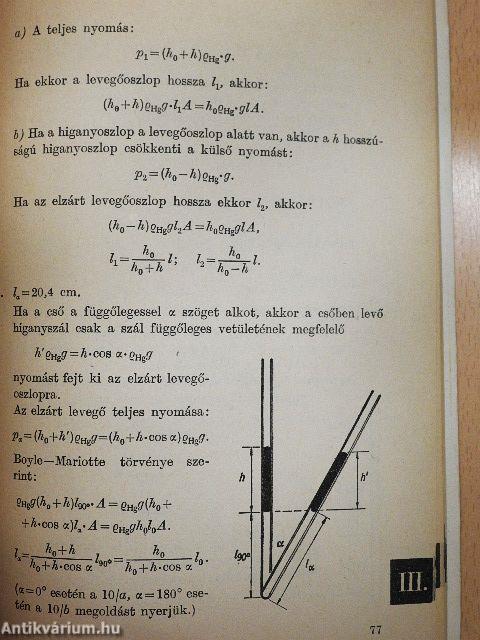 a) A teljes nyomás:
p₁=(h₀+h)ϱHg·g.
Ha ekkor a levegőoszlop hossza l₁, akkor:
(h₀+h)ϱHgg·l₁A=h₀ϱHg·glA.
b) Ha a higanyoszlop a levegőoszlop alatt van, akkor a h hosszú-
ságú higanyoszlop csökkenti a külső nyomást:
p₂=(h₀−h)ϱHg·g.
Ha az elzárt levegőoszlop hossza ekkor l₂, akkor:
(h₀−h)ϱHggl₂A=h₀ϱHgglA,
l₁=h₀/(h₀+h) l; l₂=h₀/(h₀−h) l.
. lα=20,4 cm.
Ha a cső a függőlegessel α szöget alkot, akkor a csőben levő
higanyszál csak a szál függőleges vetületének megfelelő
h'ϱHgg=h·cos α·ϱHgg
nyomást fejt ki az elzárt levegő-
oszlopra.
Az elzárt levegő teljes nyomása:
pα=(h₀+h')ϱHgg=(h₀+h·cos α)ϱHgg.
Boyle—Mariotte törvénye sze-
rint:
ϱHgg(h₀+h)l90°·A=ϱHgg(h₀+
+h·cos α)lα·A=ϱHggh₀l₀A.
lα=(h₀+h)/(h₀+h·cos α) l90°=h₀/(h₀+h·cos α) l₀.
(α=0° esetén a 10/a, α=180° ese-
tén a 10/b megoldást nyerjük.)
h
h'
l90°
α
lα
III.
77
Antikvárium.hu